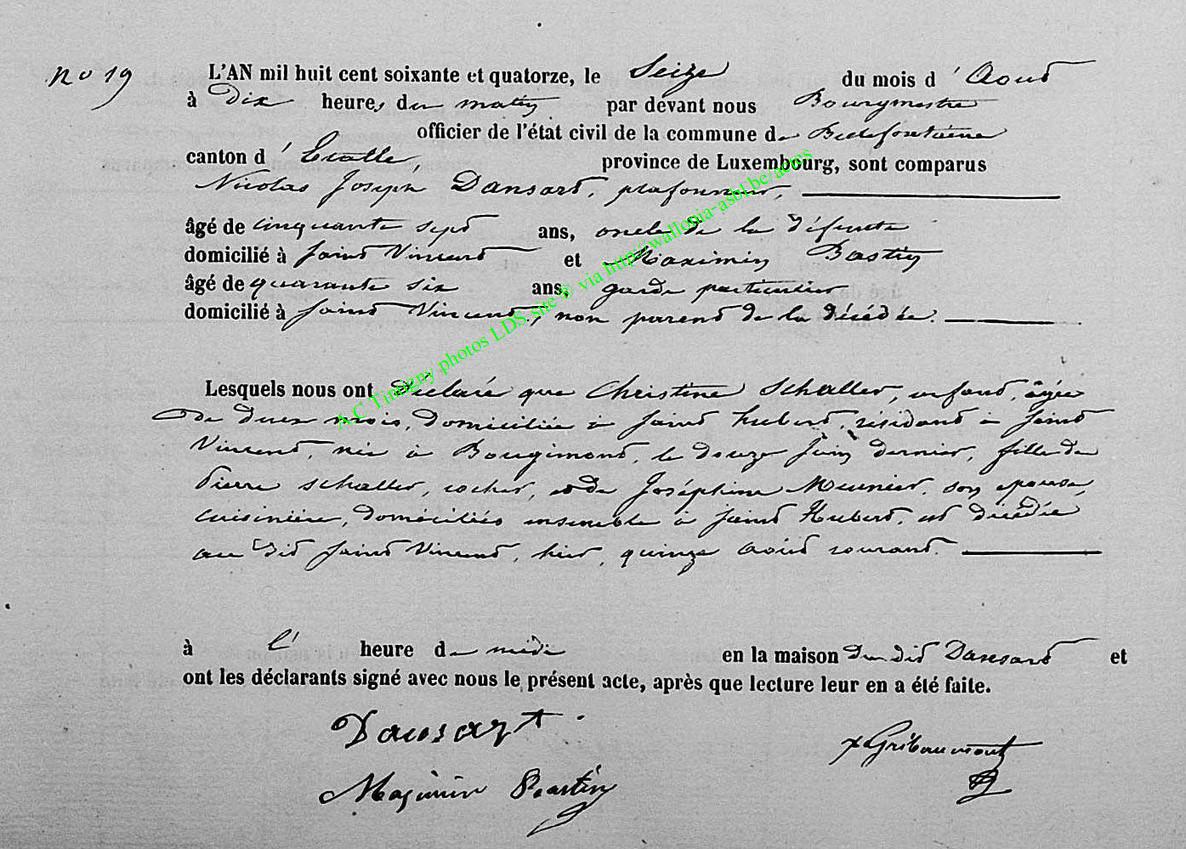 No 19
L'AN mil huit cent soixante et quatorze, le Seize du mois d'Aout
à Dix heures du matin par devant nous Bourgmestre
officier de l'état civil de la commune de Bellefontaine
canton d'Etalle, province de Luxembourg, sont comparus
Nicolas Joseph Dansart, plafonneur,
âgé de cinquante sept ans, oncle de la défunte
domicilié à Saint Vincent et Maximin Bastin
âgé de quarante six ans, garde particulier
domicilié à Saint Vincent, non parent de la décédée.
Lesquels nous ont déclaré que Christine Schaller, enfant, âgée
de deux mois, domiciliée à Saint Hubert, résidant à Saint
Vincent, née à Bougimont, le douze Juin dernier, fille de
Pierre Schaller, cocher, et de Joséphine Meunier, son épouse,
cuisinière, domiciliés ensemble à Saint Hubert, est décédée
au dit Saint Vincent, hier, quinze Août courant.
à l' heure de midi en la maison du dit Dansart et
ont les déclarants signé avec nous le présent acte, après que lecture leur en a été faite.
Dansart.
Maximin Bastin
Gribaumont
A.C Tintigny photos LDS site © via http://wallonia-asbl.be/actes